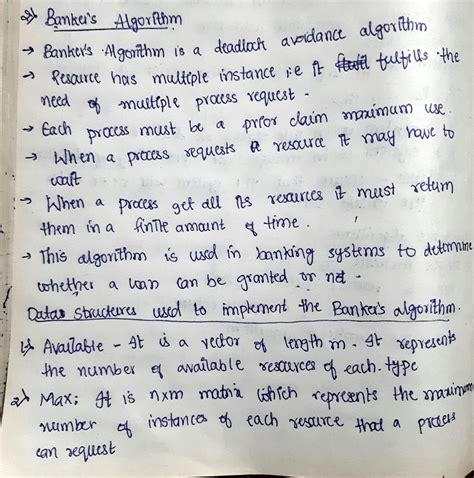 2) Banker's Algorithm
→ Banker's Algorithm is a deadlock avoidance algorithm
→ Resource has multiple instance i.e it fulfills the
need of multiple process request.
→ Each process must be a prior claim maximum use.
→ When a process requests a resource it may have to
wait
→ When a process get all its resources it must return
them in a finite amount of time.
→ This algorithm is used in banking systems to determine
whether a loan can be granted or not.
Data structures used to implement the Banker's algorithm.
1) Available - It is a vector of length m. It represents
the number of available resources of each type
2) Max: It is nxm matrix which represents the maximum
number of instances of each resource that a process
can request